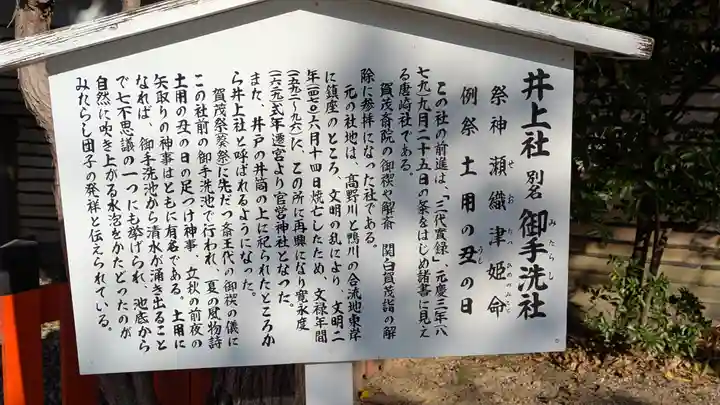 井上社 別名 御手洗社
みたらし
祭神 瀬織津姫命
せおりつひめのみこと
例祭 土用の丑の日
うし
この社の前進は、「三代実録」元慶三年（八
七九）九月二十五日の条をはじめ諸書に見え
る唐崎社である。
賀茂斎院の御禊や解斎 関白賀茂詣の解
除に参拝になった社である。
元の社地は、高野川と鴨川の合流地東岸
に鎮座のところ、文明の乱により、文明二
年（一四七〇）六月十四日焼亡したため、文禄年間
（一五九二〜九六）に、この所に再興になり寛永度
（一六二九）式年遷宮より官営神社となった。
また、井戸の井筒の上に祀られたところか
ら井上社と呼ばれるようになった。
賀茂祭（葵祭）に先だつ斎王代の御禊の儀は
この社前の御手洗池で行われ、夏の風物詩
土用の丑の日の足つけ神事、立秋の前夜の
矢取りの神事はともに有名である。土用に
なれば、御手洗池から清水が湧き出ること
で七不思議の一つにも挙げられ、池底から
自然に吹き上がる水泡をかたどったのが
みたらし団子の発祥と伝えられている。